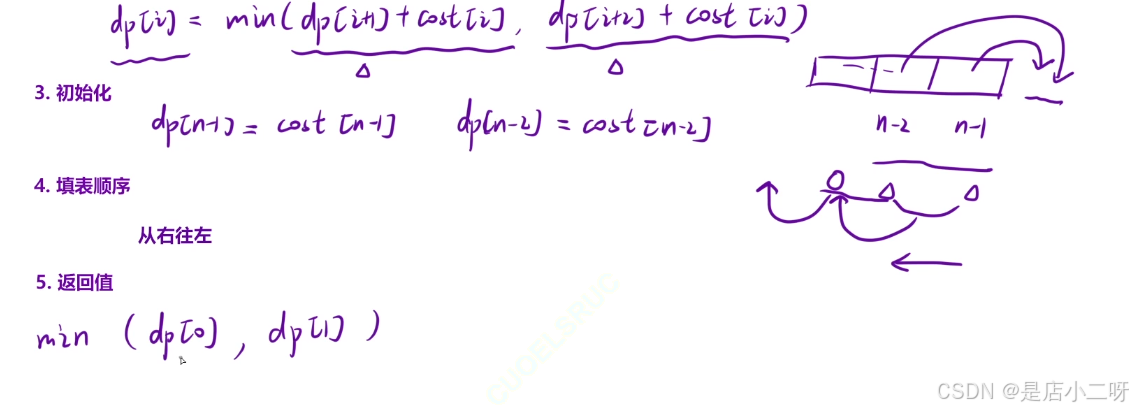 dp[i] = min(dp[i+1]+cost[i], dp[i+2]+cost[i])
3. 初始化
dp[n-1] = cost[n-1] dp[n-2] = cost[n-2]
n-2 n-1
4. 填表顺序
从右往左
5. 返回值
min (dp[0], dp[1])
CUOELSRUC
CSDN @是店小二呀